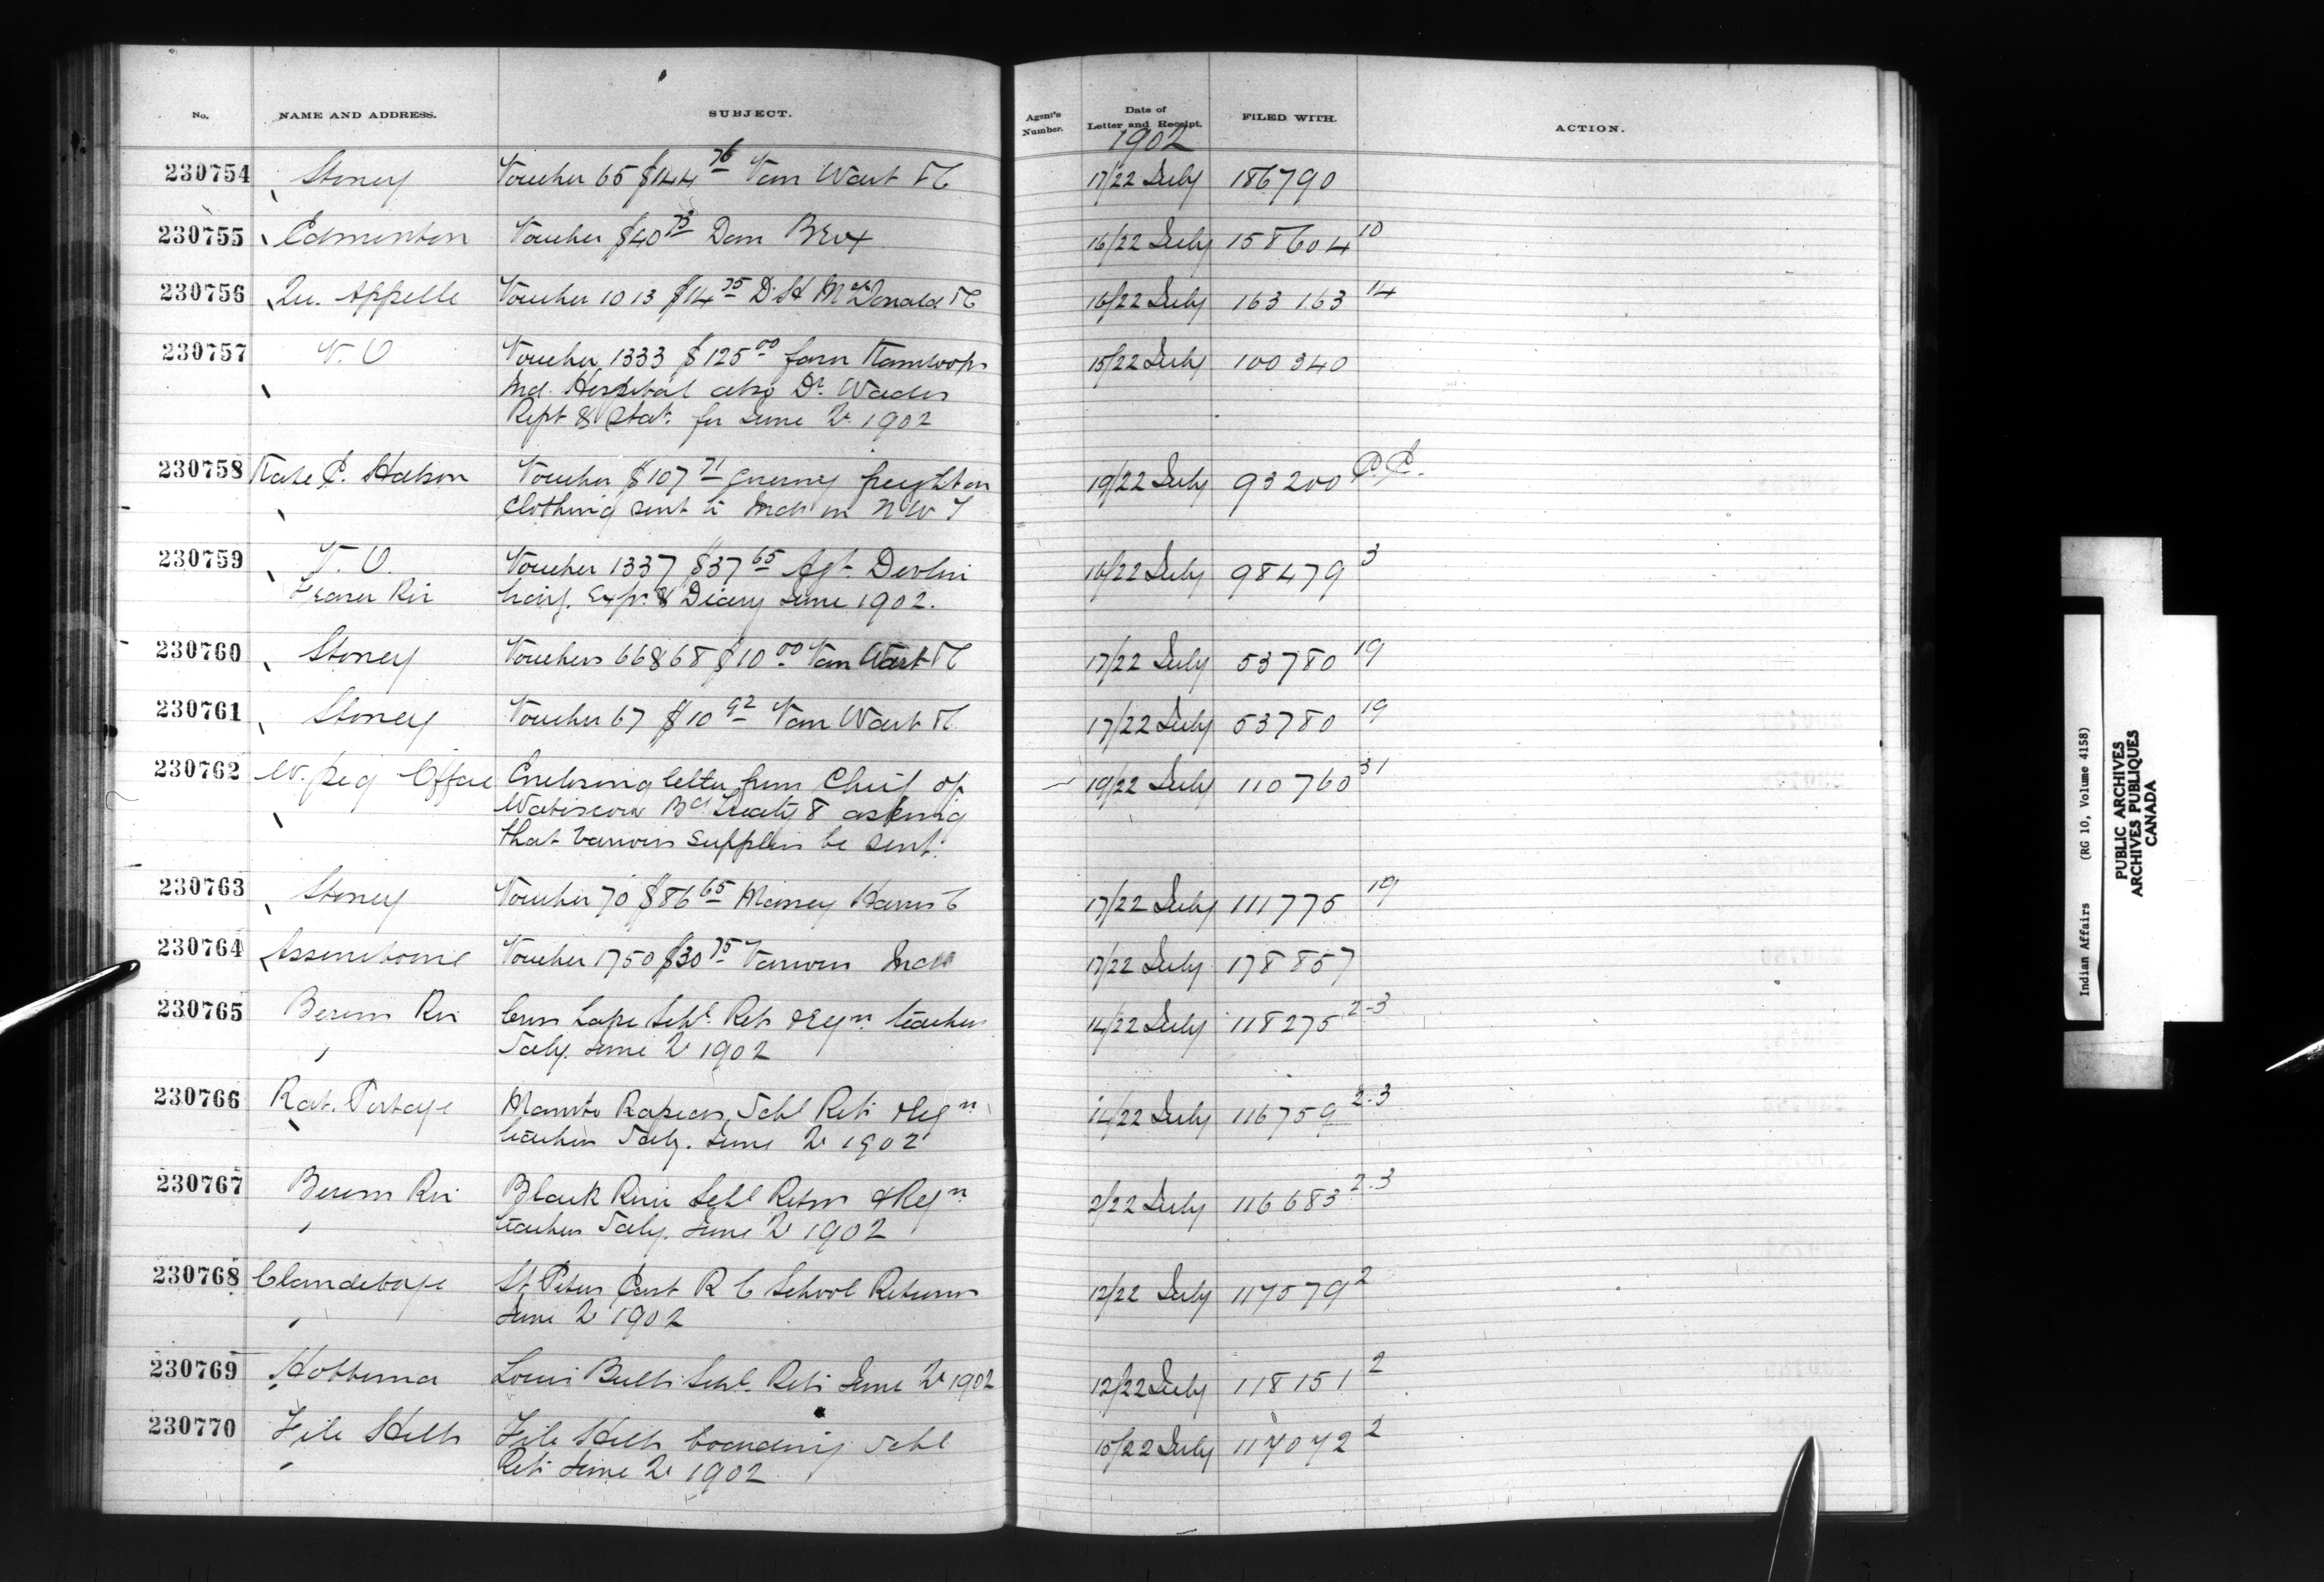 No. NAME AND ADDRESS. SUBJECT. Agent's Number. Date of Letter and Receipt. FILED WITH. ACTION.
1902
230754 Stoney Voucher 65 $144 76 Van Wart & C 17/22 July 186790
230755 Edmonton Voucher $40 Dom 16/22 July 158604 10
230756 Qu. Appelle Voucher 1013 $14 75 D. H McDonald & C 16/22 July 163163 14
230757 V. O Voucher 1333 $125 00 favr Kamloops 15/22 July 100340
Ind. Hospital also Dr. Wades
Rept & Stat. for June Qr 1902
230758 Kate Voucher $107 71 freight on 19/22 July 93200 P.C.
Clothing sent to Inds in N W T
230759 V. O. Voucher 1337 $37 65 Agt. Devlin 16/22 July 98479 3
Fraser Riv Exps. & Diary June 1902.
230760 Stoney Vouchers 66 & 68 $10 00 Van Wart & C 17/22 July 53780 19
230761 Stoney Voucher 67 $10 92 Van Wart & C 17/22 July 53780 19
230762 W. peg Office Enclosing letter from Chief of 19/22 July 110760 31
Wabiscow Bd. Treaty 8 asking
that various supplies be sent.
230763 Stoney Voucher 70 $86 65 Massey Harris C 17/22 July 111775 19
230764 Assiniboine Voucher 1750 $30 75 Various Inds 17/22 July 178857
230765 Berens Riv Schl. Rets & Reqn. teachers 14/22 July 118275 2-3
Saly. June Qr 1902
230766 Rat. Portage Manito Rapids Schl Rets & Reqn 14/22 July 116759 2-3
teachers Saly. June Qr 1902
230767 Berens Riv Black River Schl Retns & Reqn 2/22 July 116683 2-3
teachers Saly. June Qr 1902
230768 Clandeboye St. Peters East R C School Returns 12/22 July 117579 2
June Qr 1902
230769 Hobbema Louis Bulls Schl. Rets June Qr 1902 12/22 July 118151 2
230770 File Hills File Hills boarding Schl 15/22 July 117072 2
Rets June Qr 1902
Indian Affairs (RG 10, Volume 4158)
PUBLIC ARCHIVES
ARCHIVES PUBLIQUES
CANADA